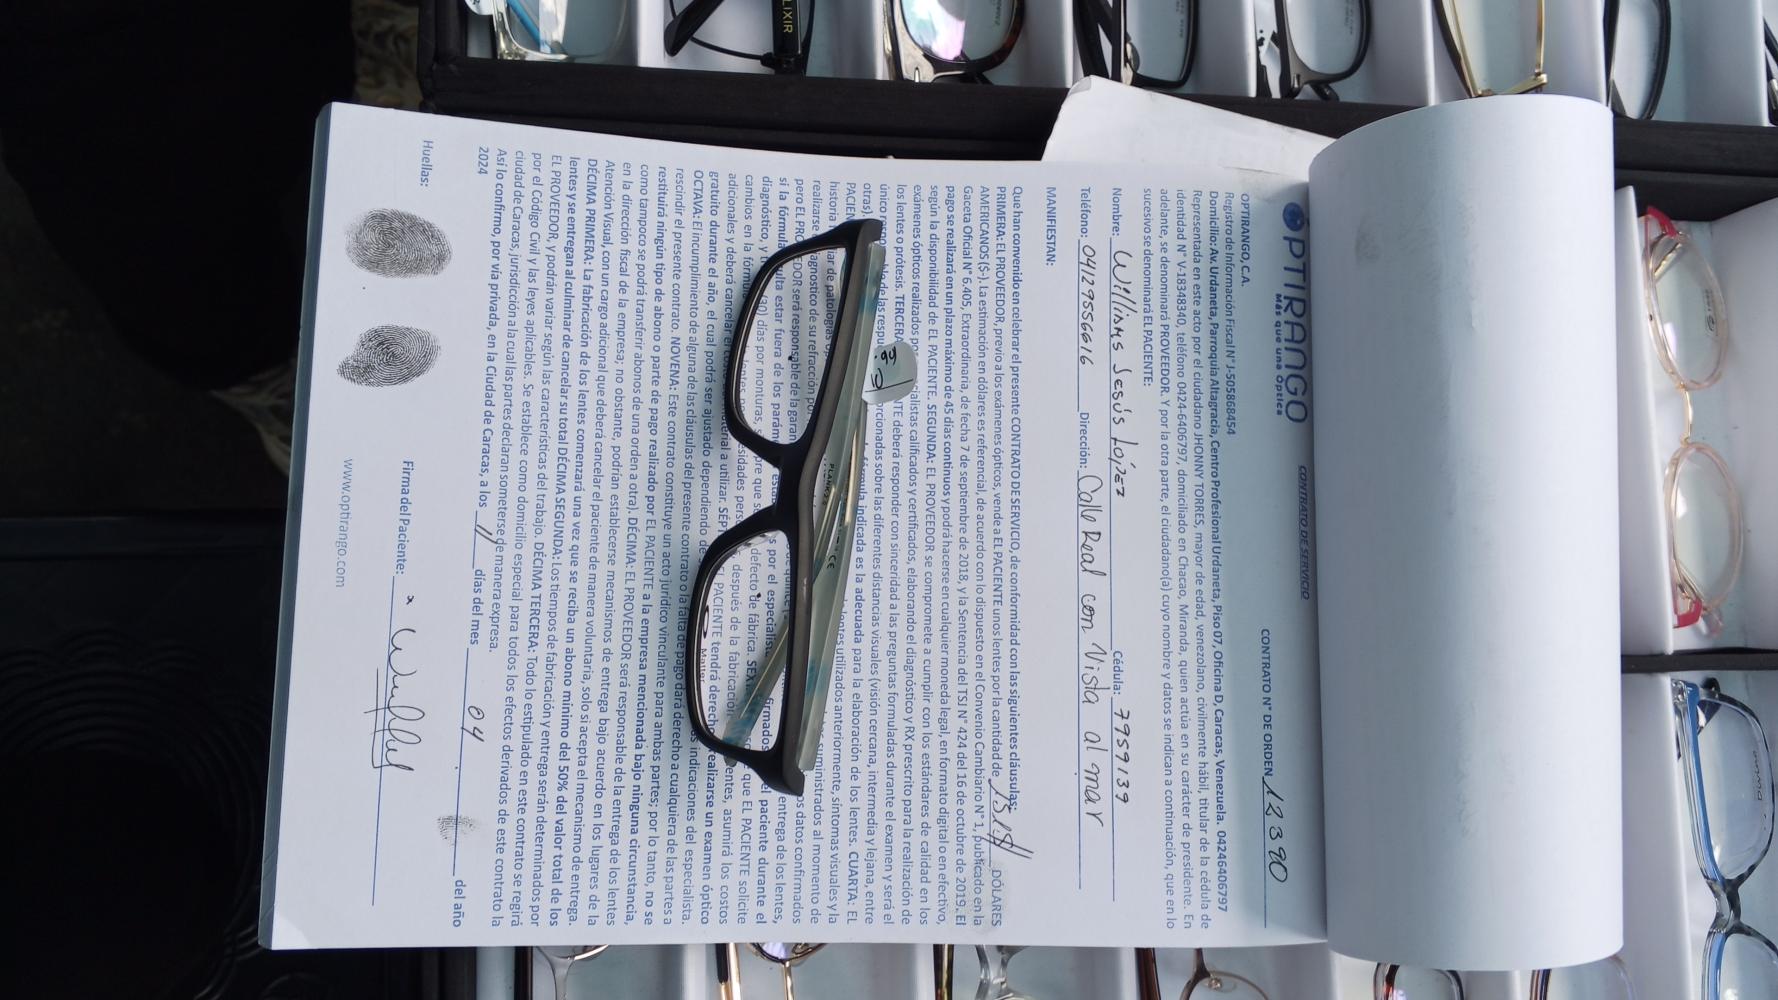 OPTIRANGO
Más que una Óptica
CONTRATO DE SERVICIO
CONTRATO N° DE ORDEN 12390
OPTIRANGO, C.A.
Registro de Información Fiscal N° J-505868454
Domicilio: Av. Urdaneta, Parroquia Altagracia, Centro Profesional Urdaneta, Piso 07, Oficina D, Caracas, Venezuela. 04246406797
Representada en este acto por el ciudadano JHONNY TORRES, mayor de edad, venezolano, civilmente hábil, titular de la cédula de
identidad N° V-18348340, teléfono 0424-6406797, domiciliado en Chacao, Miranda, quien actúa en su carácter de presidente. En
adelante, se denominará PROVEEDOR. Y por la otra parte, el ciudadano(a) cuyo nombre y datos se indican a continuación, que en lo
sucesivo se denominará EL PACIENTE:
Nombre: Williams Jesús López Cédula: 7959139
Teléfono: 04129556616 Dirección: Calle Real con Vista al mar
MANIFIESTAN:
Que han convenido en celebrar el presente CONTRATO DE SERVICIO, de conformidad con las siguientes cláusulas:
PRIMERA: EL PROVEEDOR, previo a los exámenes ópticos, vende a EL PACIENTE unos lentes por la cantidad de DÓLARES
AMERICANOS ($). La estimación en dólares es referencial, de acuerdo con lo dispuesto en el Convenio Cambiario N° 1, publicado en la
Gaceta Oficial N° 6.405, Extraordinaria, de fecha 7 de septiembre de 2018, y la Sentencia del TSJ N° 424 del 16 de octubre de 2019. El
pago se realizará en un plazo máximo de 45 días continuos y podrá hacerse en cualquier moneda legal, en formato digital o en efectivo,
según la disponibilidad de EL PACIENTE. SEGUNDA: EL PROVEEDOR se compromete a cumplir con los estándares de calidad en los
exámenes ópticos realizados por especialistas calificados y certificados, elaborando el diagnóstico y RX prescrito para la realización de
los lentes o prótesis. TERCERA: deberá responder con sinceridad a las preguntas formuladas durante el examen y será el
único de las proporcionadas sobre las diferentes distancias visuales (visión cercana, intermedia y lejana, entre
otras). fórmula indicada es la adecuada para la elaboración de los lentes. CUARTA: EL
PACIEN lentes utilizados anteriormente, síntomas visuales y la
historia de patologías suministrados al momento de
realizarse diagnostico de su refracción por los datos confirmados
pero EL PRO DOR será responsable de la garan entrega de los lentes,
si la fórmula estar fuera de los parám por el especialista paciente durante el
diagnóstico, y (30) días por monturas, defecto de fábrica. que EL PACIENTE solicite
cambios en la fórmula después de la fabricación asumirá los costos
adicionales y deberá cancelar el material a utilizar. EL PACIENTE tendrá derecho realizarse un examen óptico
gratuito durante el año, el cual podrá ser ajustado dependiendo de indicaciones del especialista.
OCTAVA: El incumplimiento de alguna de las cláusulas del presente contrato o la falta de pago dará derecho a cualquiera de las partes a
rescindir el presente contrato. NOVENA: Este contrato constituye un acto jurídico vinculante para ambas partes; por lo tanto, no se
restituirá ningún tipo de abono o parte de pago realizado por EL PACIENTE a la empresa mencionada bajo ninguna circunstancia,
como tampoco se podrá transferir abonos de una orden a otra). DÉCIMA: EL PROVEEDOR será responsable de la entrega de los lentes
en la dirección fiscal de la empresa; no obstante, podrían establecerse mecanismos de entrega bajo acuerdo en los lugares de la
Atención Visual, con un cargo adicional que deberá cancelar el paciente de manera voluntaria, solo si acepta el mecanismo de entrega.
DÉCIMA PRIMERA: La fabricación de los lentes comenzará una vez que se reciba un abono mínimo del 50% del valor total de los
lentes y se entregan al culminar de cancelar su total DÉCIMA SEGUNDA: Los tiempos de fabricación y entrega serán determinados por
EL PROVEEDOR, y podrán variar según las características del trabajo. DÉCIMA TERCERA: Todo lo estipulado en este contrato se regirá
por el Código Civil y las leyes aplicables. Se establece como domicilio especial para todos los efectos derivados de este contrato la
ciudad de Caracas, jurisdicción a la cual las partes declaran someterse de manera expresa.
Así lo confirmo, por vía privada, en la Ciudad de Caracas, a los 11 días del mes 04 del año
2024
Huellas:
Firma del Paciente:
www.optirango.com
LIXIR